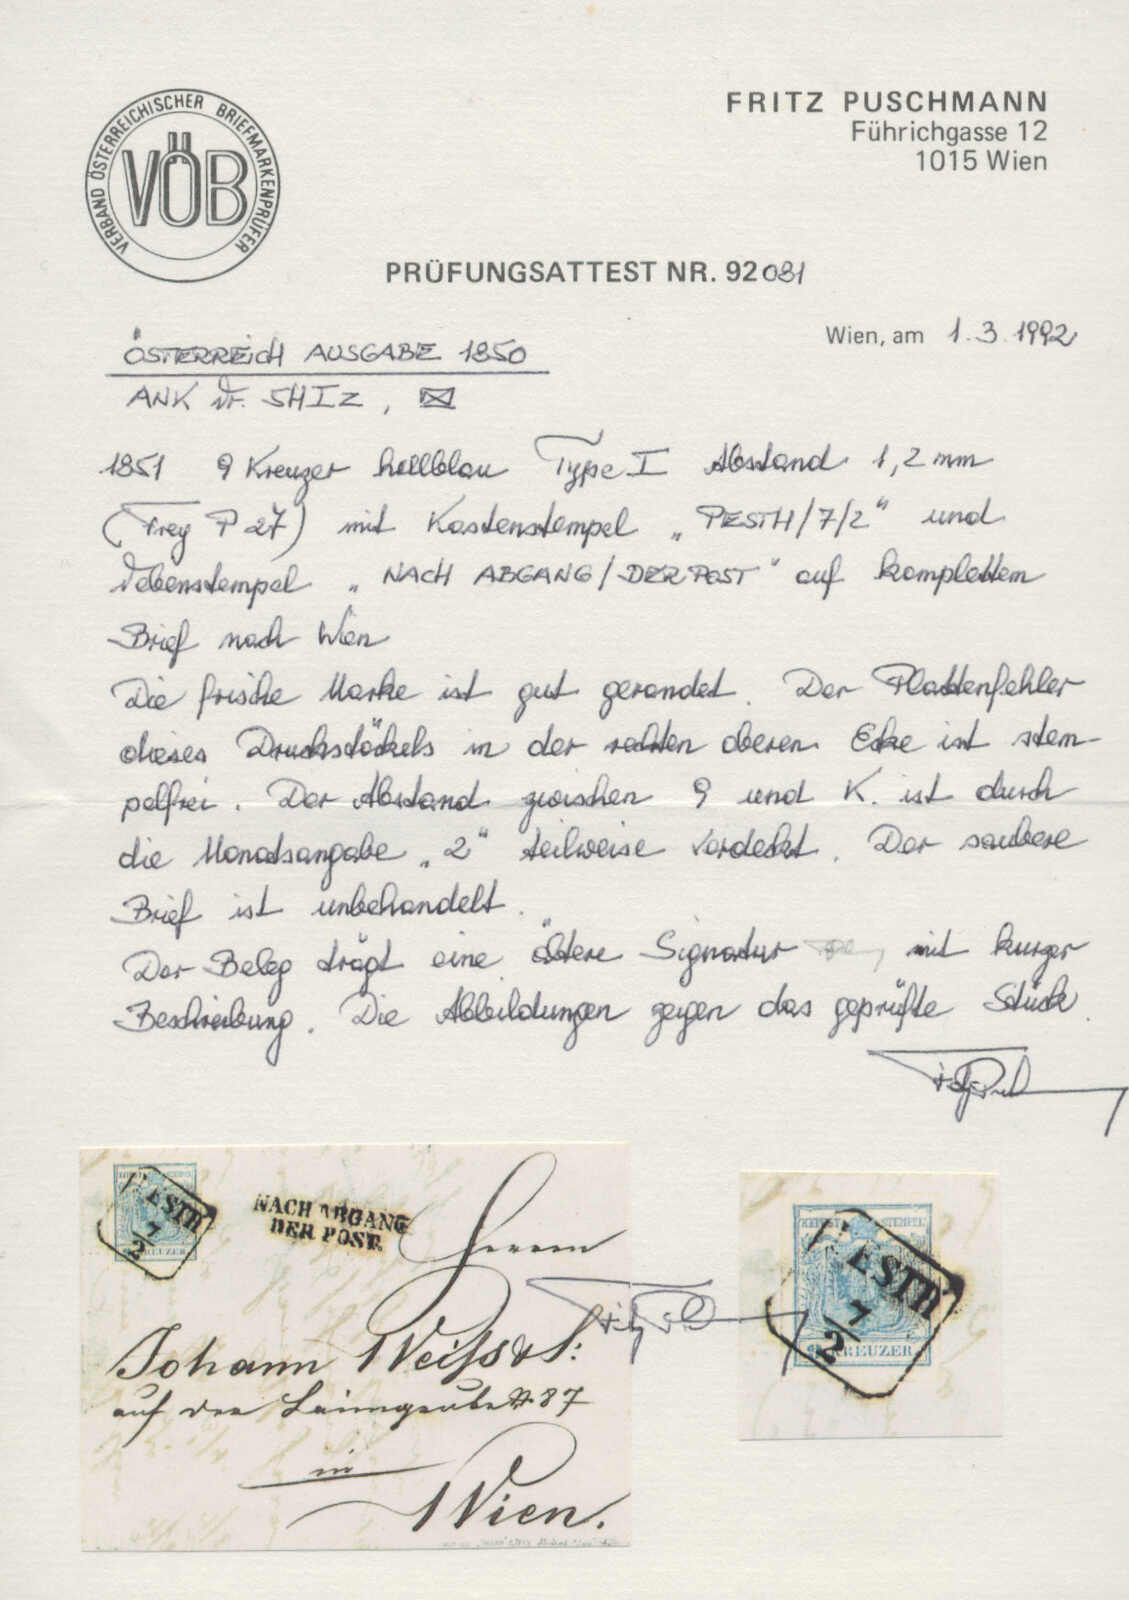 VERBAND ÖSTERREICHISCHER BRIEFMARKENPRÜFER
VÖB
FRITZ PUSCHMANN
Führichgasse 12
1015 Wien
PRÜFUNGSATTEST NR. 92081
Wien, am 1.3.1992
ÖSTERREICH AUSGABE 1850
ANK Nr. 5HIz,
1851 9 Kreuzer hellblau Type I Abstand 1,2 mm
(Frey P 27) mit Kastenstempel „PESTH/7/2" und
Nebenstempel „NACH ABGANG/DER POST" auf komplettem
Brief nach Wien
Die frische Marke ist gut gerandet. Der Plattenfehler
dieses Druckstöckels in der rechten oberen Ecke ist stem-
pelfrei. Der Abstand zwischen 9 und K. ist durch
die Monatsangabe „2" teilweise verdeckt. Der saubere
Brief ist unbehandelt.
Der Beleg trägt eine ältere Signatur mit kurzer
Beschreibung. Die Abbildungen zeigen das geprüfte Stück.
ESTH
7
2
KREUZER
NACH ABGANG
DER POST.
Herrn
Johann Weiss & S:
auf der Laimgrube N 87
in
Wien.
STEMPEL
ESTH
7
2
KREUZER